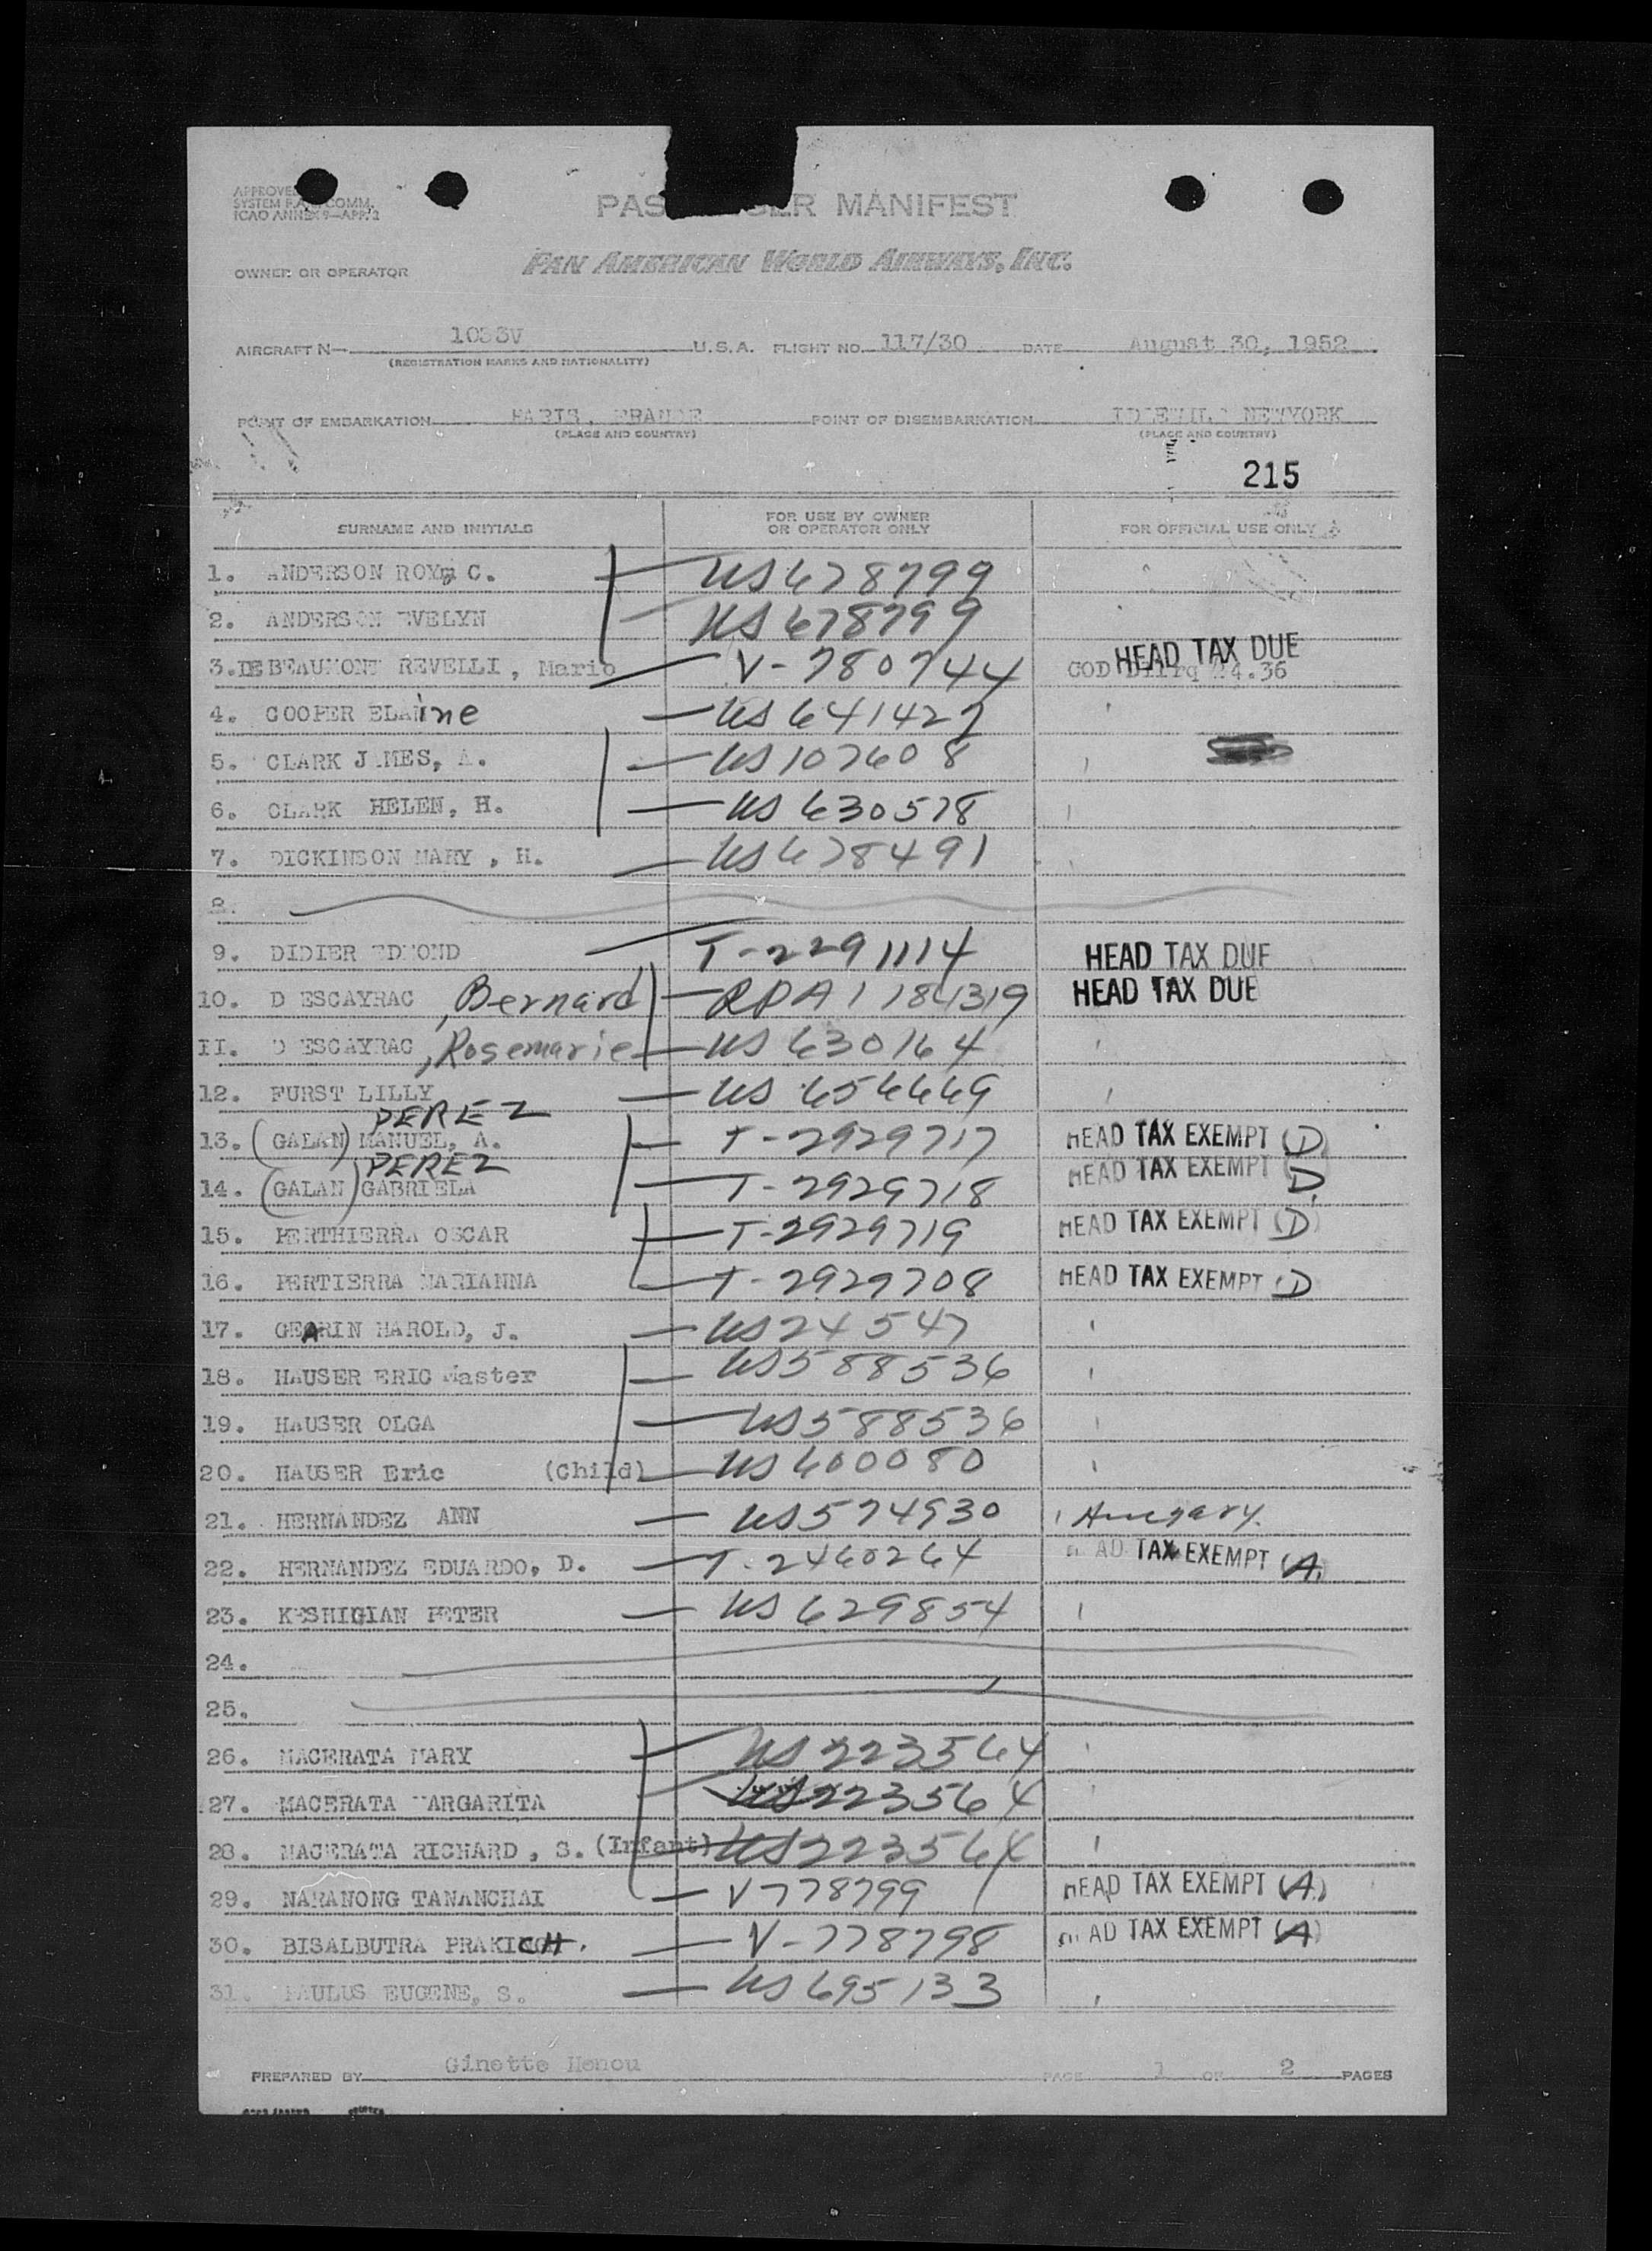 APPROVED
SYSTEM F.A. COMM.
ICAO ANNEX 9—APP. 2
PAS GER MANIFEST
OWNER OR OPERATOR PAN AMERICAN WORLD AIRWAYS, INC.
AIRCRAFT N— 1033V U.S.A. FLIGHT NO. 117/30 DATE August 30, 1952
(REGISTRATION MARKS AND NATIONALITY)
POINT OF EMBARKATION PARIS, FRANCE POINT OF DISEMBARKATION IDLEWILD NEWYORK
(PLACE AND COUNTRY) (PLACE AND COUNTRY)
215
SURNAME AND INITIALS FOR USE BY OWNER OR OPERATOR ONLY FOR OFFICIAL USE ONLY
1. ANDERSON ROY C. US 678799
2. ANDERSON EVELYN US 678799
3. DE BEAUMONT REVELLI, Mario V-780744 COD 4.36 HEAD TAX DUE
4. COOPER ELAine US 641427
5. CLARK JAMES, A. US 107608
6. CLARK HELEN, H. US 630578
7. DICKINSON MARY , H. US 678491
8.
9. DIDIER EDMOND T-2291114 HEAD TAX DUE
10. D ESCAYRAC , Bernard RPA1184319 HEAD TAX DUE
11. D ESCAYRAC , Rosemarie US 630164
12. FURST LILLY US 656669
13. (GALAN) MANUEL, A. PEREZ T-2929717 HEAD TAX EXEMPT (D)
14. (GALAN) GABRIELA PEREZ T-2929718 HEAD TAX EXEMPT D
15. PERTHIERRA OSCAR T-2929719 HEAD TAX EXEMPT (D)
16. PERTIERRA MARIANNA T-2929708 HEAD TAX EXEMPT D
17. GEARIN HAROLD, J. US 24547
18. HAUSER ERIC Master US 588536
19. HAUSER OLGA US 588536
20. HAUSER Eric (Child) US 600080
21. HERNANDEZ ANN US 574930 Hungary
22. HERNANDEZ EDUARDO, D. T-2460264 AD TAX EXEMPT (A)
23. KESHIGIAN PETER US 629854
24.
25.
26. MACERATA MARY US 223564
27. MACERATA MARGARITA US 223564
28. MACERATA RICHARD , S. (Infant) US 223564
29. NARANONG TANANCHAI V 778799 HEAD TAX EXEMPT (A)
30. BISALBUTRA PRAKICH. V-778798 AD TAX EXEMPT (A)
31. PAULUS EUGENE, S. US 695133
PREPARED BY Ginette Henou PAGE 1 OF 2 PAGES